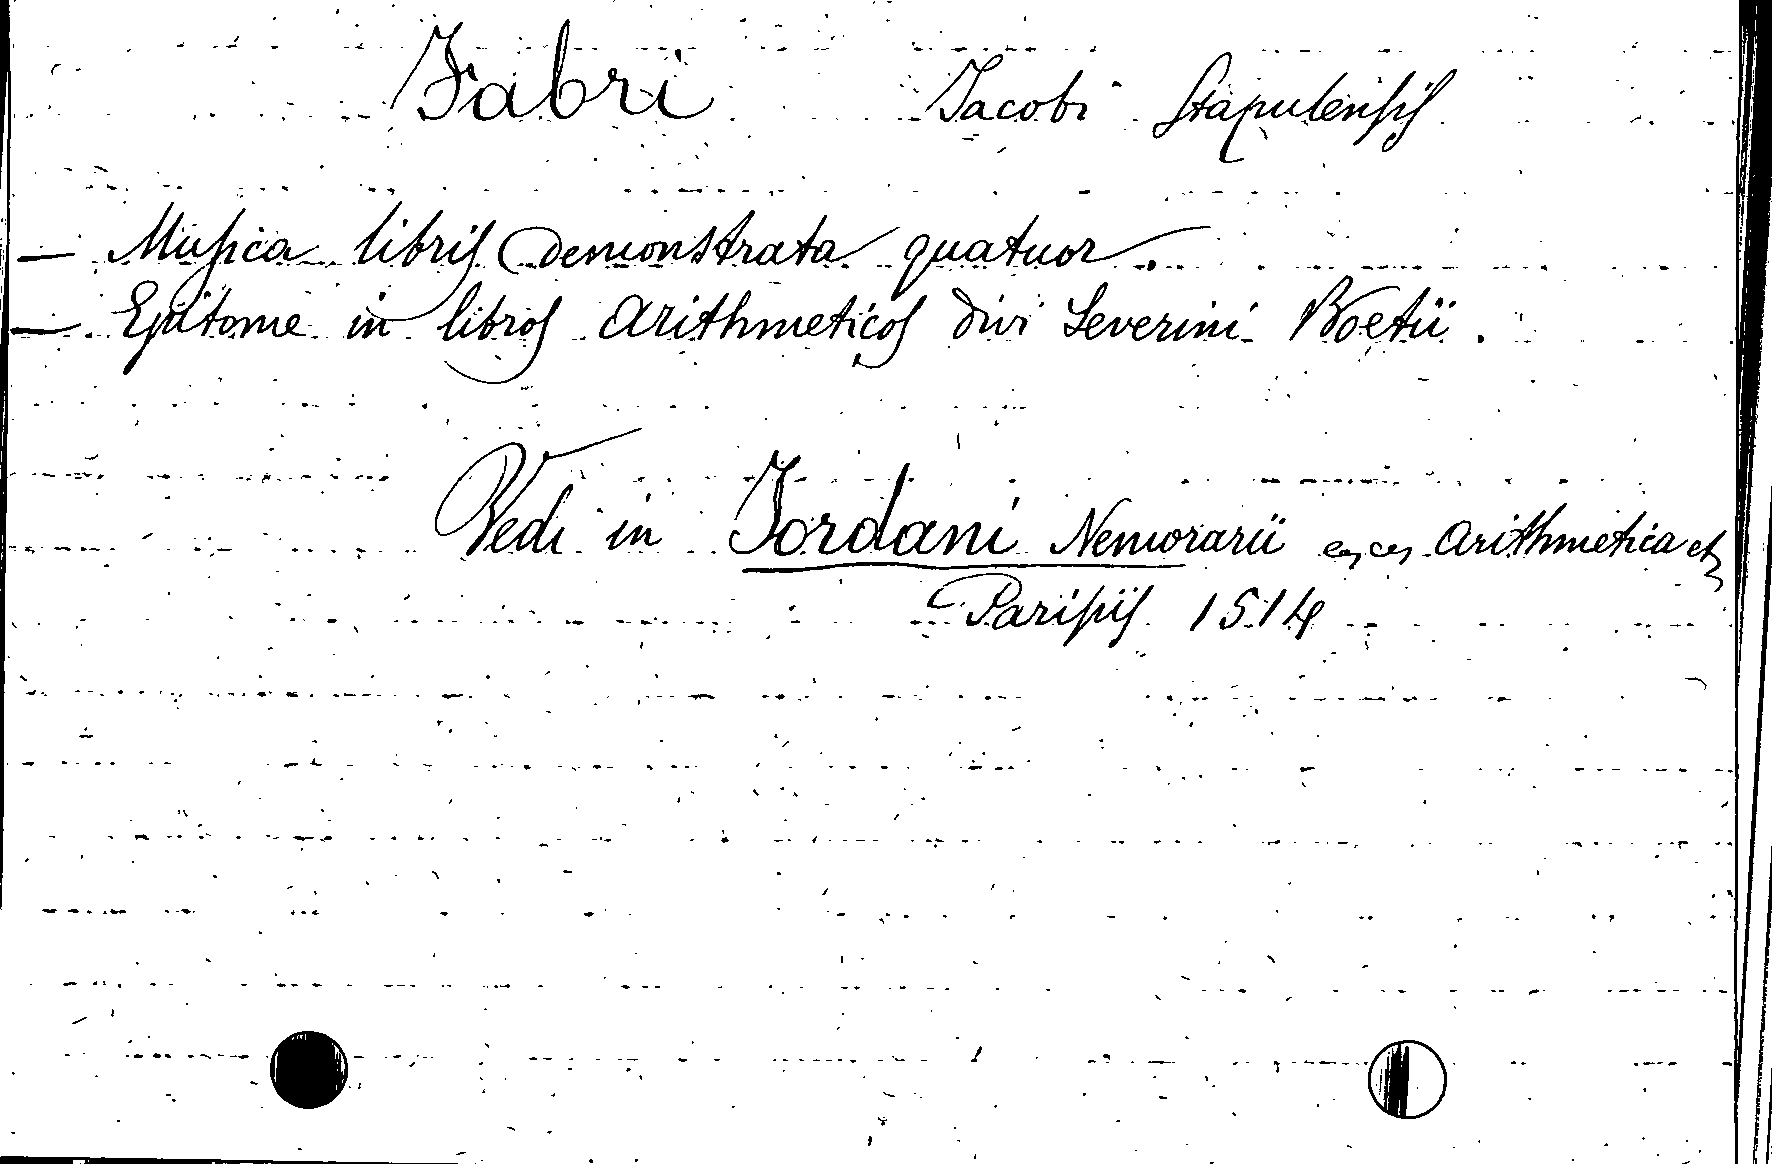 Fabri Jacobi Stapulensis
— Musica libris Demonstrata quatuor.
— Epitome in libros Arithmeticos divi Severini Boetii.
Vedi in Jordani Nemorarii Arithmetica etc
Parisiis 1514